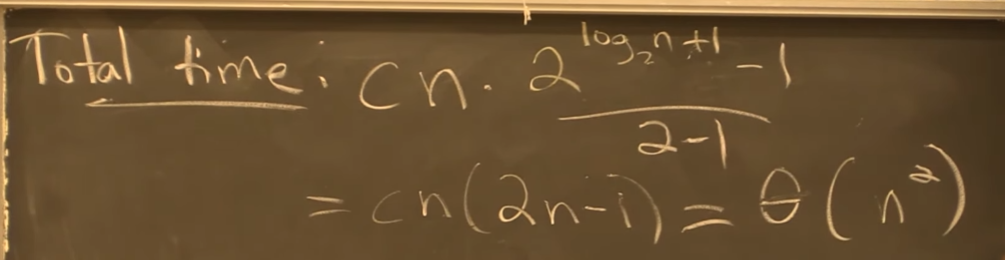 Total time: cn · (2^(log₂n+1) - 1)/(2-1)
= cn(2n-1) = θ(n²)